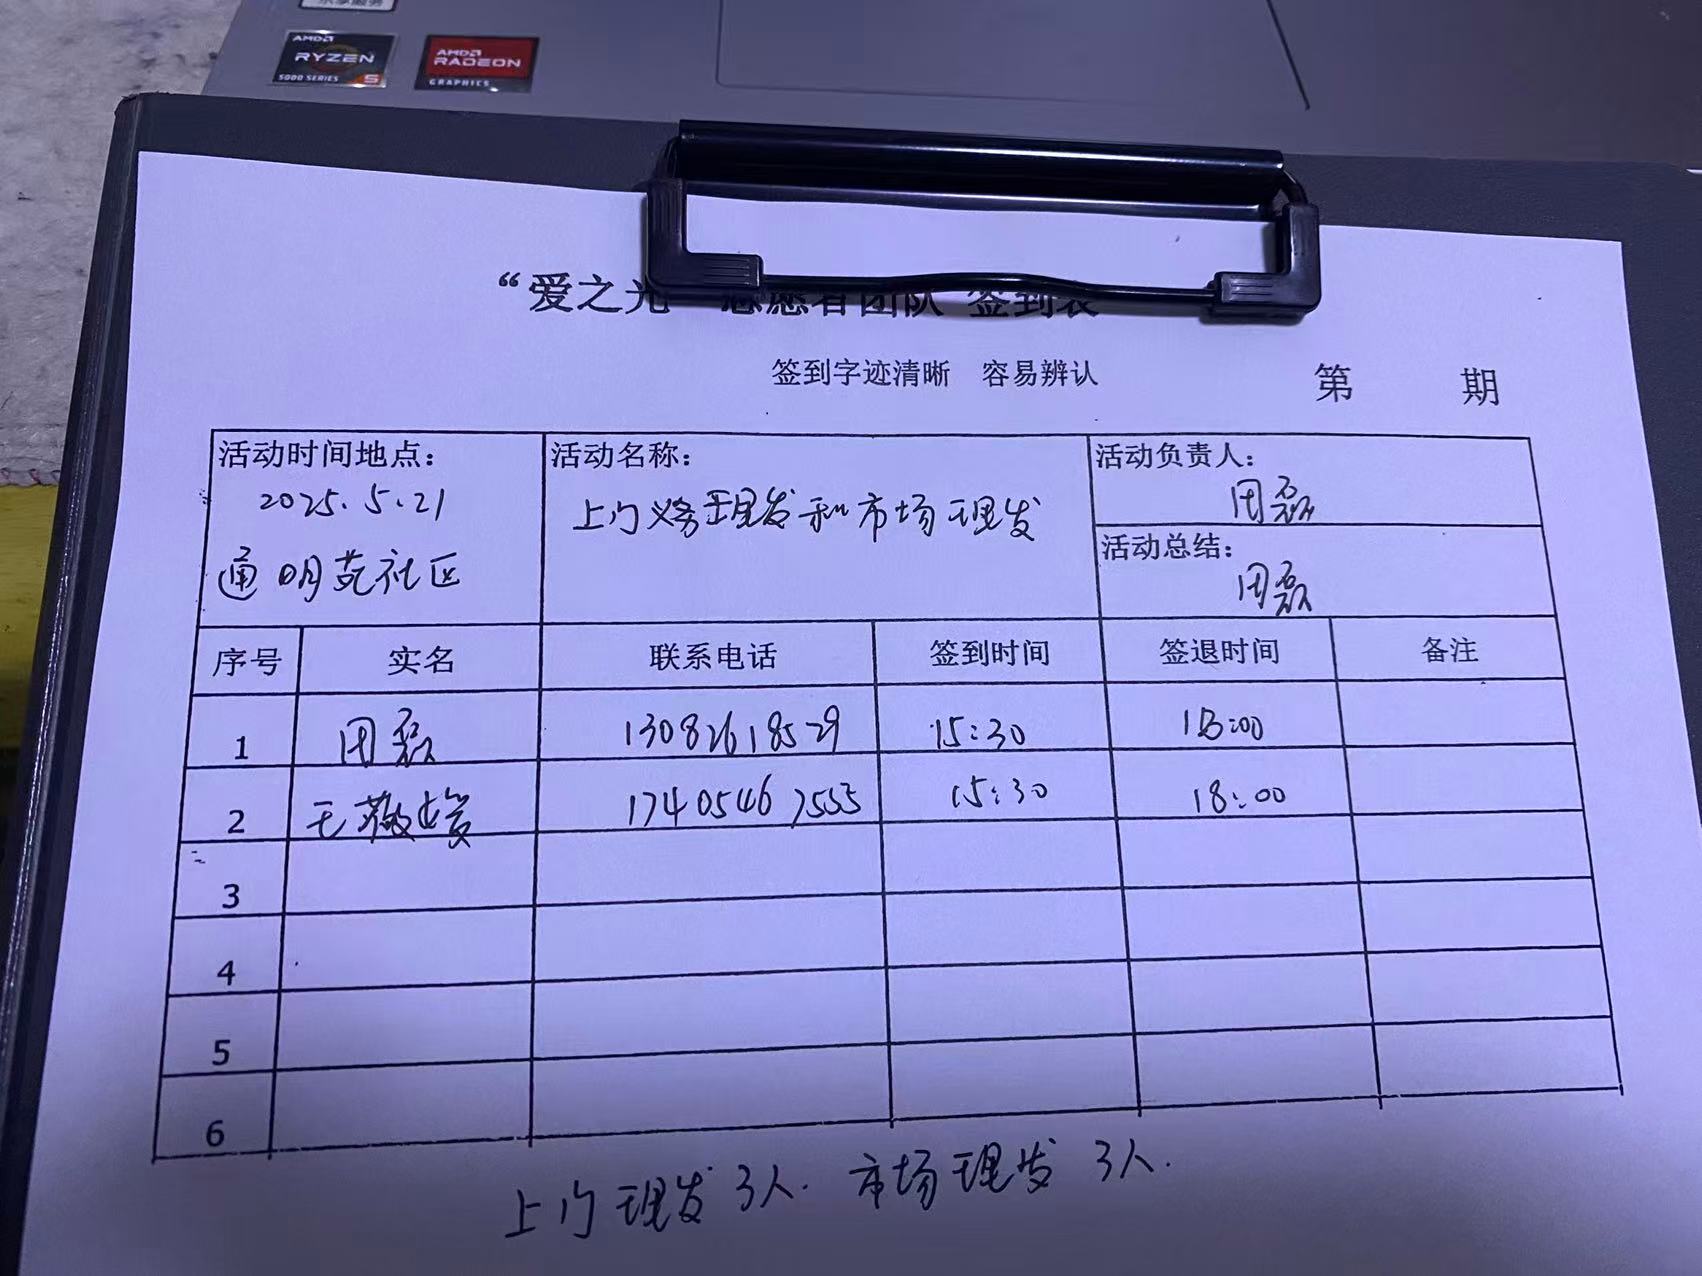 京享服务
AMD
RYZEN
5000 SERIES 5
AMD
RADEON
GRAPHICS
“爱之光” 志愿者团队 签到表
签到字迹清晰 容易辨认
第 期
活动时间地点：
2025.5.21
通明苑社区
活动名称：
上门义务理发和市场理发
活动负责人：
周磊
活动总结：
周磊
序号 实名 联系电话 签到时间 签退时间 备注
1 周磊 13082618529 15:30 18:00
2 17405467555 15:30 18:00
3
4
5
6
上门理发3人. 市场理发 3人.